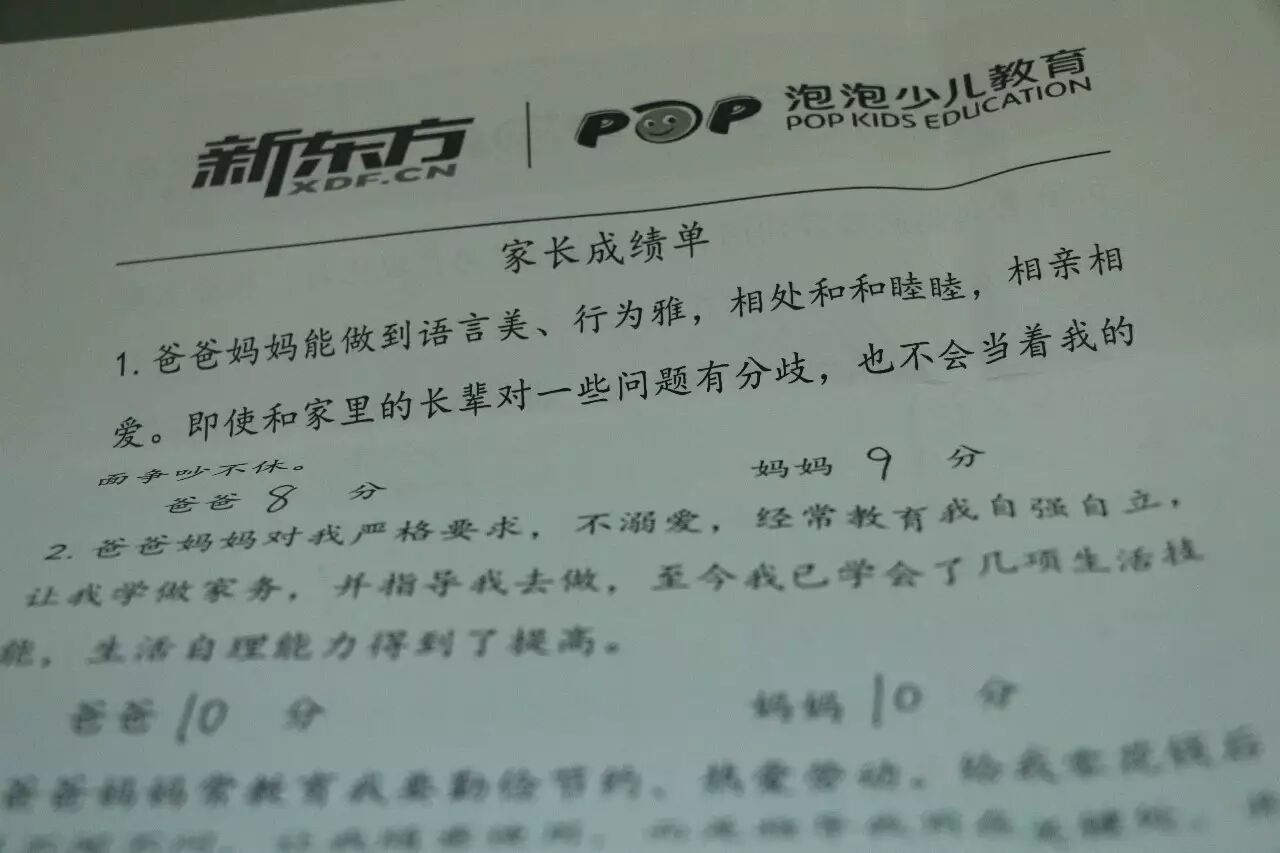 新东方
XDF.CN
POP
泡泡少儿教育
POP KIDS EDUCATION
家长成绩单
1. 爸爸妈妈能做到语言美、行为雅，相处和和睦睦，相亲相
爱。即使和家里的长辈对一些问题有分歧，也不会当着我的
面争吵不休。
爸爸 8 分 妈妈 9 分
2. 爸爸妈妈对我严格要求，不溺爱，经常教育我自强自立，
让我学做家务，并指导我去做，至今我已学会了几项生活技
能，生活自理能力得到了提高。
爸爸 10 分 妈妈 10 分
爸爸妈妈常教育我要勤俭节约、热爱劳动。给我零花钱后